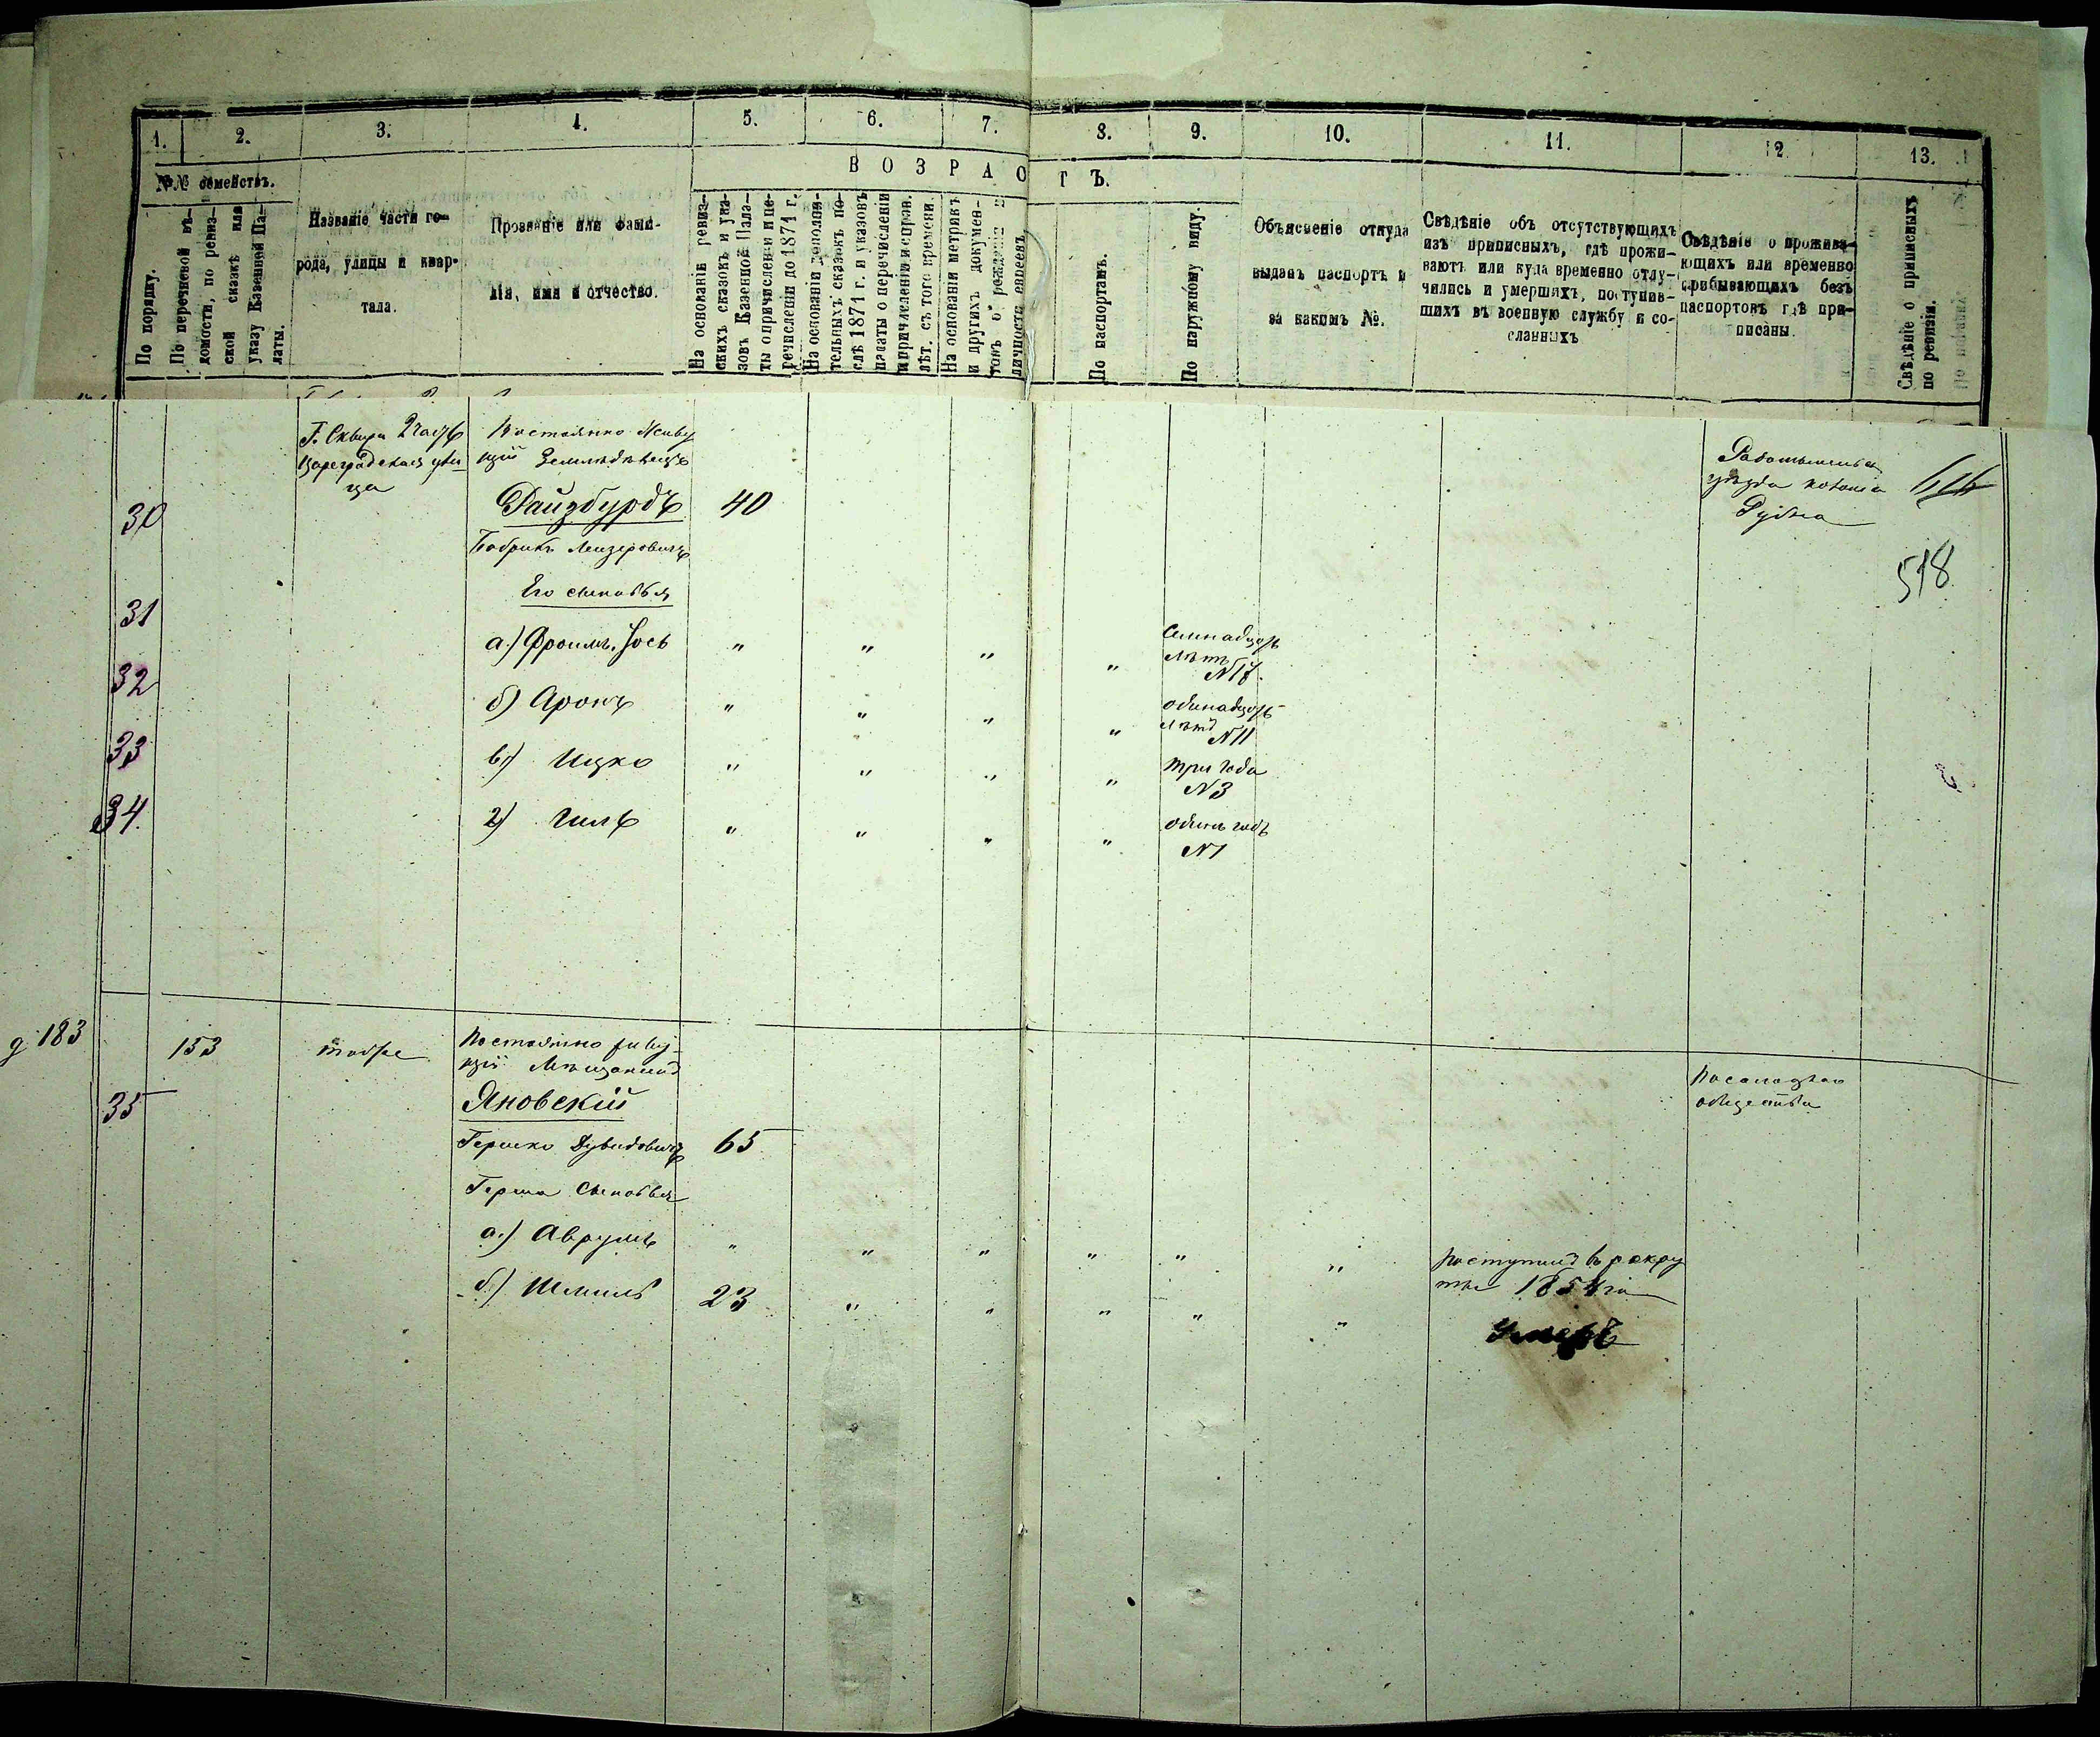 1. 2. 3. 4. 5. 6. 7. 8. 9. 10. 11. 12. 13.
№№ семействъ.
ВОЗРАСТЪ.
По порядку.
По перечневой вѣ-
домости, по ревиз-
ской сказкѣ или
указу Казенной Па-
латы.
Названіе части го-
рода, улицы и квар-
тала.
Прозваніе или фами-
лія, имя и отчество.
На основаніи ревиз-
скихъ сказокъ и ука-
зовъ Казенной Пала-
ты о причисленіи и пе-
речисленіи до 1871 г.
На основаніи дополни-
тельныхъ сказокъ по-
слѣ 1871 г. и указовъ
палаты о перечисленіи
и причисленіи и справ.
лѣт. съ того времени.
На основаніи метрикъ
и другихъ докумен-
товъ о рожденіи и
личности евреевъ
По паспортамъ.
По наружному виду.
Объясненіе откуда
выданъ паспортъ и
за какимъ №.
Свѣдѣніе объ отсутствующихъ
изъ приписныхъ, гдѣ прожи-
ваютъ или куда временно отлу-
чились и умершихъ, поступив-
шихъ въ военную службу и со-
сланныхъ
Свѣдѣніе о прожива-
ющихъ или временно
прибывающихъ безъ
паспортовъ гдѣ при-
писаны.
Свѣдѣніе о приписныхъ
по ревизіи.
Г. Сквира 2 часть
Цареградская ули
ца
Постоянно Живу
щій Земледѣлецъ
30 Файзбурдъ 40
Лейзеровичъ
уѣзда колонія
518
Его сыновья
31 а.) Фроимъ-Іось " " " " семнадцать
лѣтъ
№17.
32 б) Аронъ " " " " одинадцать
лѣтъ
№11
33 в.) Ицко " " " " три года
№3
34. г) Гиль " " " " одинъ годъ
№1
д 183 153 тоже Постоянно живу-
щій Мѣщанинъ
35 Яновскій
общества
Гершко Дувидовичъ 65
Герша Сыновья
а.) Аврумъ " " " " " " поступилъ в рекру
ты 1854 го
б.) Шмиль 23 " " " " " умеръ